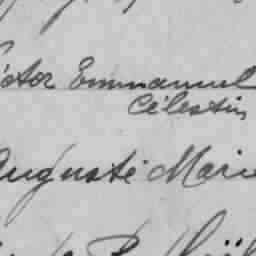 ictor Emmanuel
Célestin
Auguste Marie